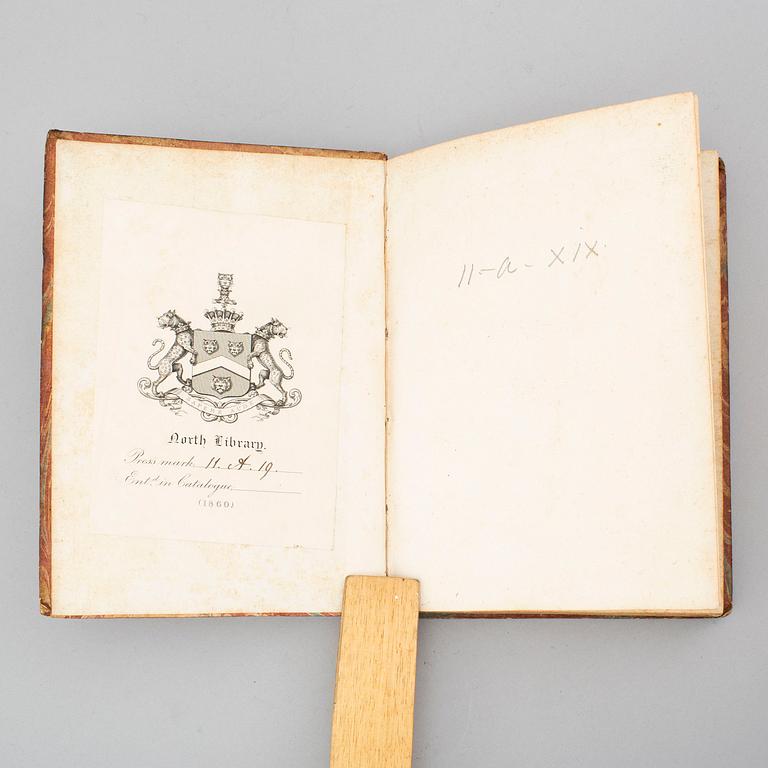 SAPERE AUDE
North Library.
Press mark 11. A. 19.
Ent.d in Catalogue
(1860)
11-a-XIX.